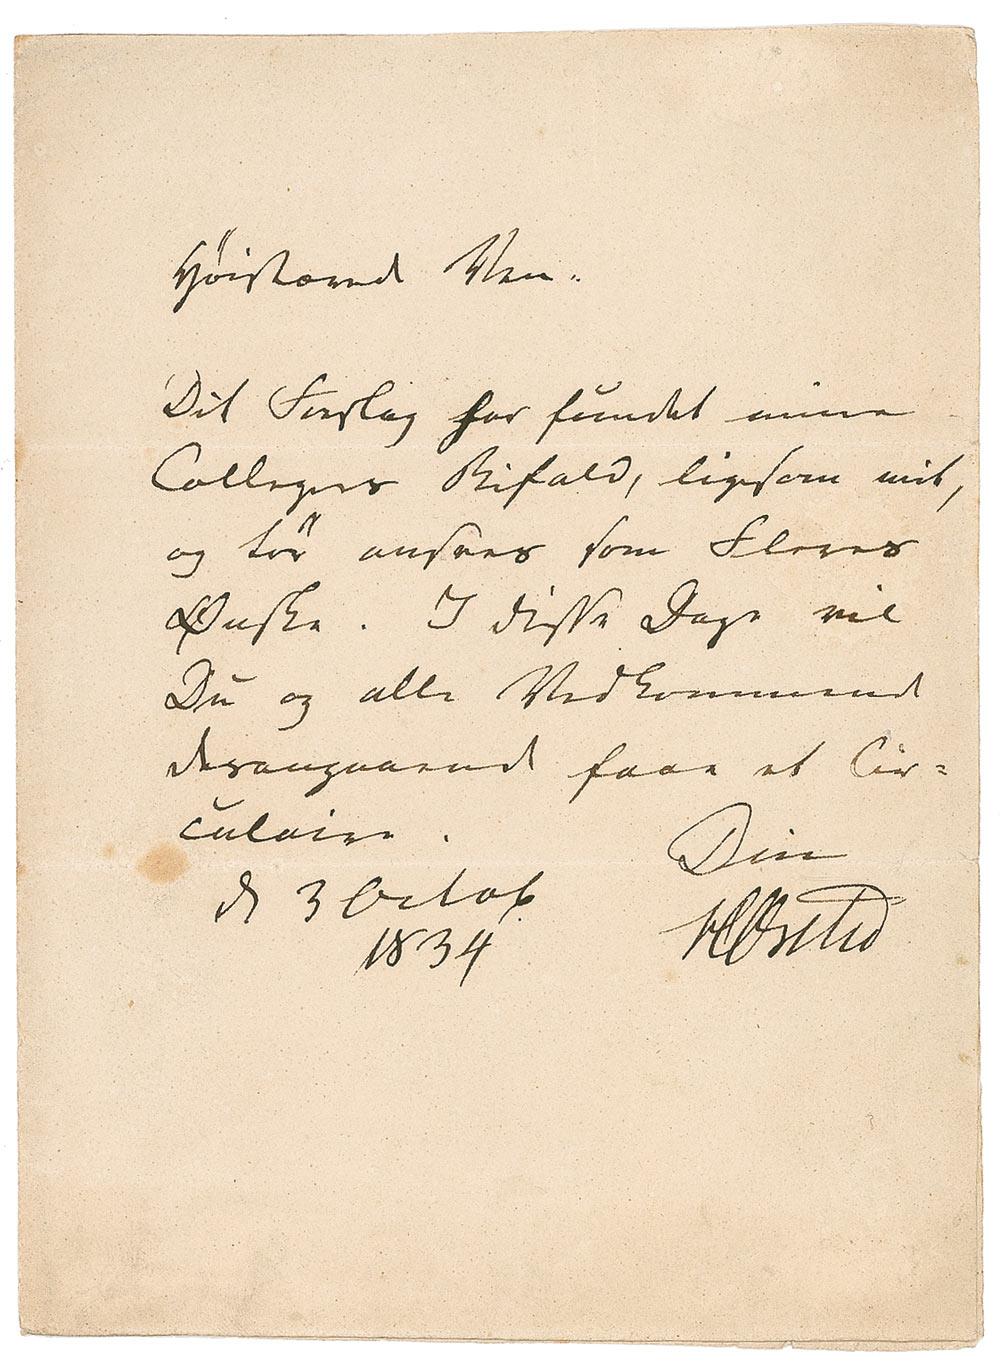 Høistærede Ven.
Dit Forslag har fundet mine
Collegers Bifald, ligesom mit,
og tør ansees som Fleres
Ønske. I disse Dage vil
Du og alle Vedkommende
desangaaende faae et Cir=
culaire.
Din
d 3 Octob.
1834
HCØrsted